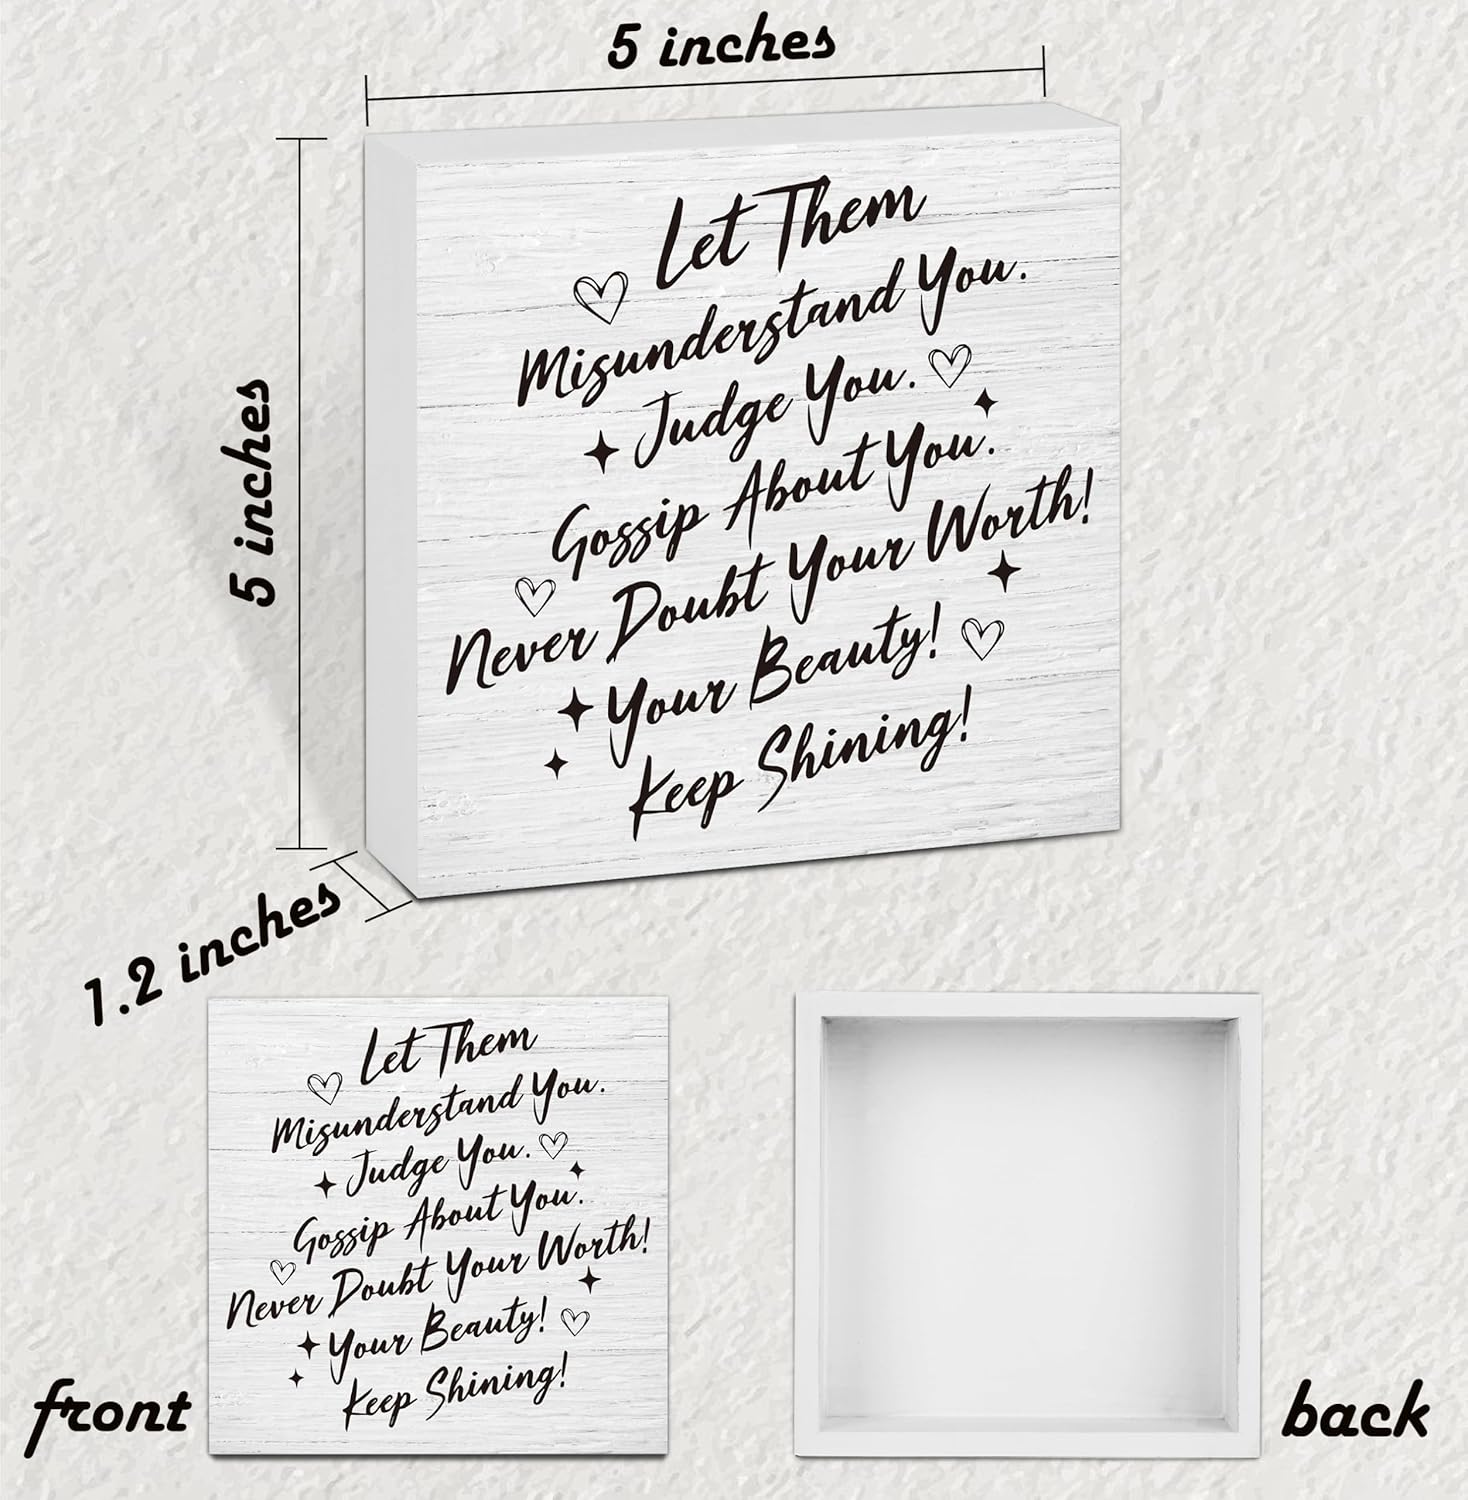 5 inches
5 inches
1.2 inches
Let Them
Misunderstand You.
Judge You.
Gossip About You.
Never Doubt Your Worth!
Your Beauty!
Keep Shining!
Let Them
Misunderstand You.
Judge You.
Gossip About You.
Never Doubt Your Worth!
Your Beauty!
Keep Shining!
front
back